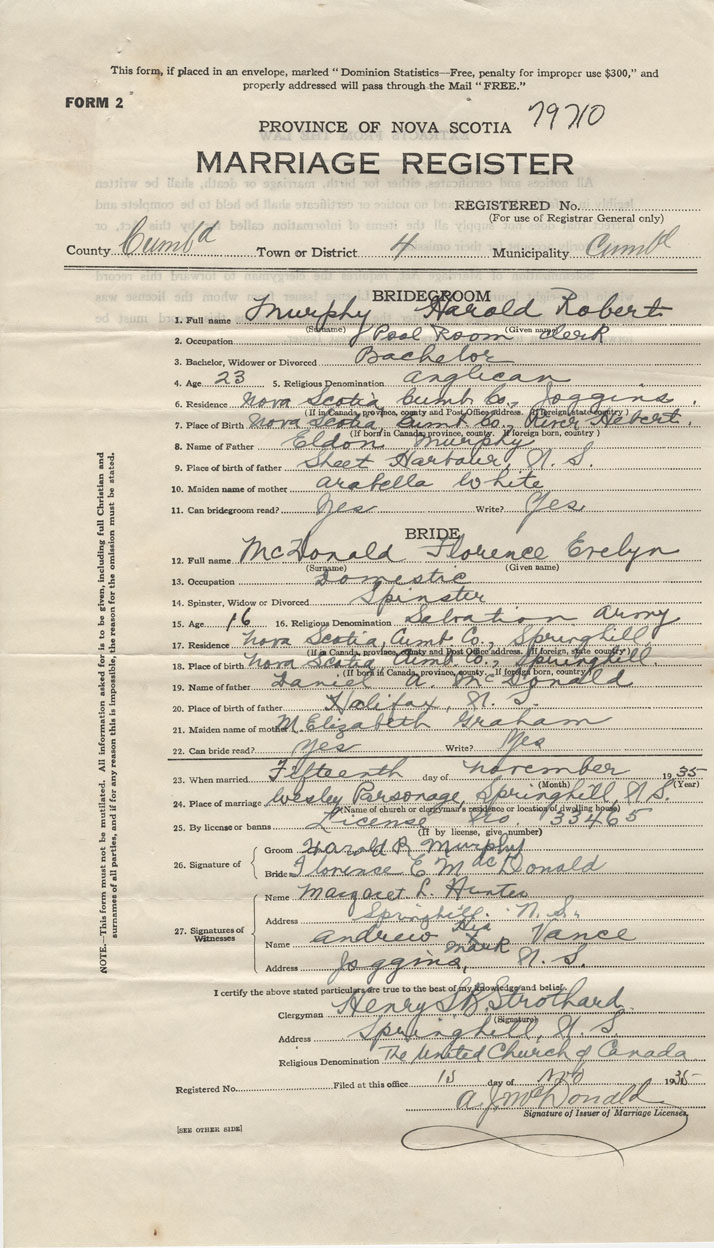 This form, if placed in an envelope, marked "Dominion Statistics—Free, penalty for improper use $300," and
properly addressed will pass through the Mail "FREE."
FORM 2
79710
PROVINCE OF NOVA SCOTIA
MARRIAGE REGISTER
REGISTERED No.
(For use of Registrar General only)
County Cumb'd Town or District 4 Municipality Cumb'd
BRIDEGROOM
1. Full name Murphy Harold Robert
(Surname) (Given name)
2. Occupation Pool Room Clerk
3. Bachelor, Widower or Divorced Bachelor
4. Age 23 5. Religious Denomination Anglican
6. Residence Nova Scotia, Cumb Co., Joggins.
(If in Canada, province, county and Post Office address. If foreign, state country)
7. Place of Birth Nova Scotia, Cumb Co., River Hebert.
(If born in Canada, province, county. If foreign born, country)
8. Name of Father Eldon Murphy
9. Place of birth of father Sheet Harbour, N. S.
10. Maiden name of mother Arabella White
11. Can bridegroom read? Yes Write? Yes
BRIDE
12. Full name McDonald Florence Evelyn
(Surname) (Given name)
13. Occupation Domestic
14. Spinster, Widow or Divorced Spinster
15. Age 16 16. Religious Denomination Salvation Army
17. Residence Nova Scotia, Cumb Co., Springhill
(If in Canada, province, county and Post Office address. If foreign, state country)
18. Place of birth Nova Scotia, Cumb Co., Springhill.
(If born in Canada, province, county. If foreign born, country)
19. Name of father Daniel A. McDonald
20. Place of birth of father Halifax, N. S.
21. Maiden name of mother M. Elizabeth Graham
22. Can bride read? Yes Write? Yes
23. When married Fifteenth day of November 1935
(Month) (Year)
24. Place of marriage Wesley Parsonage, Springhill, N. S.
(Name of church or clergyman's residence or location of dwelling house)
25. By license or banns License No. 33465
(If by license, give number)
26. Signature of
Groom Harold R Murphy
Bride Florence E. MacDonald
27. Signatures of Witnesses
Name Margaret L. Hunter
Address Springhill. N. S.
Name Andrew his X mark Vance
Address Joggins, N. S.
I certify the above stated particulars are true to the best of my knowledge and belief.
Clergyman Henry S. B. Strothard
(Signature)
Address Springhill, N. S.
Religious Denomination The United Church of Canada
Registered No. Filed at this office 15 day of Nov 1935
A. J. McDonald
Signature of Issuer of Marriage Licenses.
[SEE OTHER SIDE]
NOTE.—This form must not be mutilated. All information asked for is to be given, including full Christian and
surnames of all parties, and if for any reason this is impossible, the reason for the omission must be stated.